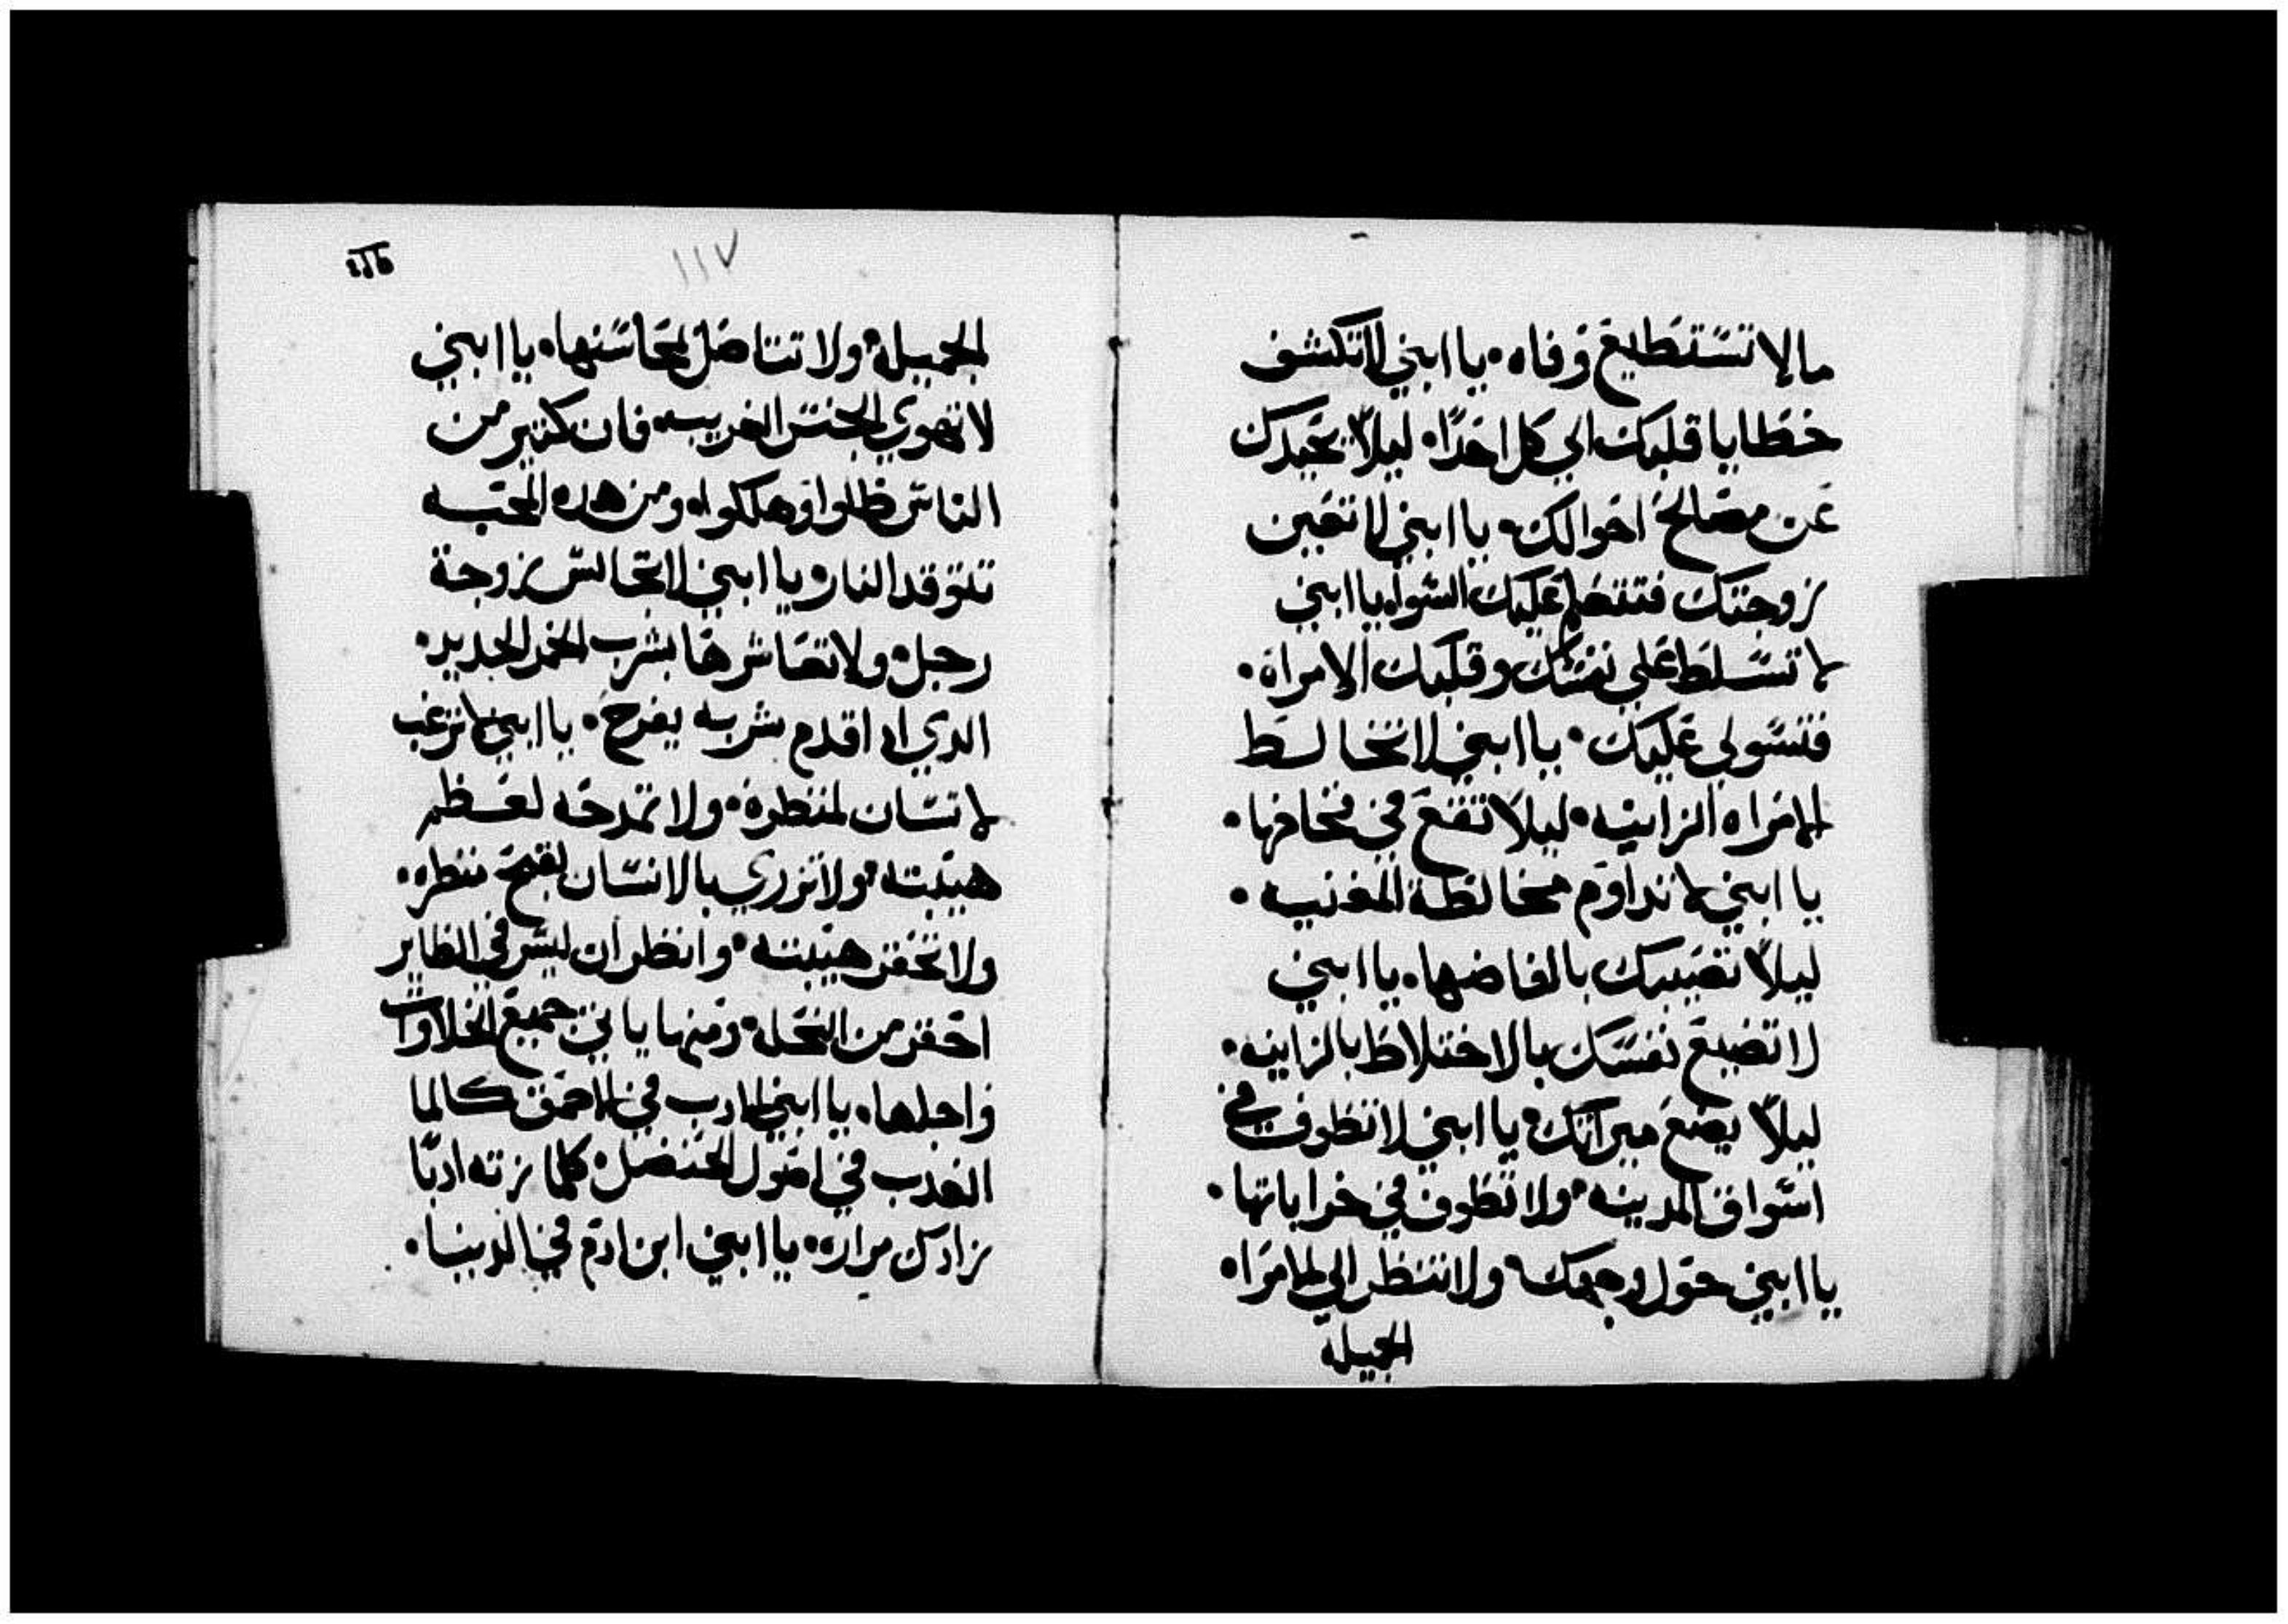 مالاتستطيع وفاه. يا ابني لاتكشف
خطايا قلبك الي كل احدًا. ليلاّ يحيدك
عن مصالح احوالك. يا ابني لا تغين
زوجتك فتتضلم عليك السّوا. يا ابني
لا تسّلط علي نفسّك وقلبك الامراة.
فتسّولي عليك. يا ابني لا تخالط
الامراه الزانيه. ليلا تقع في فخاخها.
يا ابني لا تداوم مخالطة المغنيه.
ليلاّ تصيبك بالفاضها. يا ابني
لا تضيع نفسّك بالاختلاط بالزانيه.
ليلاّ يضع ميراتك. يا ابني لا تطوف في
اسّواق المدينه. ولا تطوف في خراباتها.
يا ابني حول وجهك. ولا تنظر الي الامراه
الجميله
١١٧
الجميله. ولا تتاضل لمحاسّنها. يا ابني
لا تهوي الجنس الغريبه. فان كتير من
الناس ظلوا وهلكوا. ومن هده المحبه
تتوقد النار. يا ابني لا تجالسّ زوجة
رجل. ولا تعاشرها بشرب الخمر الجديد.
الدي اد اقدم شربه يفرح. يا ابني لا ترغب
لا نسّان لمنظرة. ولا تمدحه لعظم
هيبته. ولا تزري بالانسّان لقبح منظره.
ولا تحقر هيبته. وانظر ان ليسّ في الطاير
احقر من النحله. ومنها ياتي جميع الحلاوات
واجلها. يا ابني الادب في الاحمق كالما
العدب في اصول الحنضل. كلما زته ادبًا
زادك مراره. يا ابني ابن ادم في الدنيا.